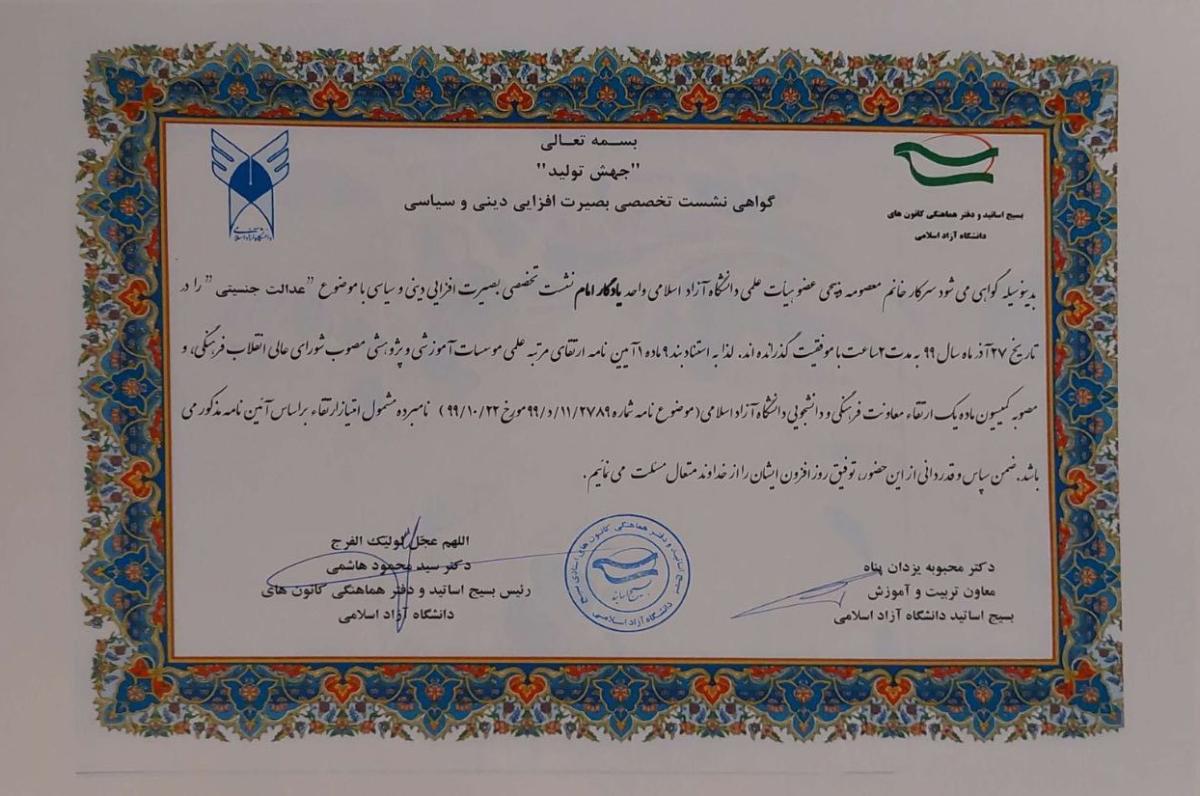 بسمه تعالی
"جهش تولید"
گواهی نشست تخصصی بصیرت افزایی دینی و سیاسی
بسیج اساتید و دفتر هماهنگی کانون های
دانشگاه آزاد اسلامی
بدینوسیله گواهی می شود سرکار خانم معصومه ذبیحی عضو هیأت علمی دانشگاه آزاد اسلامی واحد یادگار امام نشست تخصصی بصیرت افزایی دینی و سیاسی با موضوع "عدالت جنسیتی" را در
تاریخ ۲۷ آذر ماه سال ۹۹ به مدت ۲ ساعت با موفقیت گذرانده اند. لذا به استناد بند ۹ ماده ۱ آیین نامه ارتقای مرتبه علمی موسسات آموزشی و پژوهشی مصوب شورای عالی انقلاب فرهنگی، و
مصوبه کمیسیون ماده یک ارتقاء معاونت فرهنگی و دانشجویی دانشگاه آزاد اسلامی (موضوع نامه شماره ۱۱/۲۷۸۹/د/۹۹ مورخ ۹۹/۱۰/۲۲) نامبرده مشمول امتیاز ارتقاء براساس آئین نامه مذکور می
باشد. ضمن سپاس و قدردانی از این حضور، توفیق روز افزون ایشان را از خداوند متعال مسئلت می نمایم.
دکتر محبوبه یزدان پناه
معاون تربیت و آموزش
بسیج اساتید دانشگاه آزاد اسلامی
بسیج اساتید و دفتر هماهنگی کانون های استادی بسیج
بسیج اساتید
دانشگاه آزاد اسلامی
اللهم عجل لولیک الفرج
دکتر سید محمود هاشمی
رئیس بسیج اساتید و دفتر هماهنگی کانون های
دانشگاه آزاد اسلامی